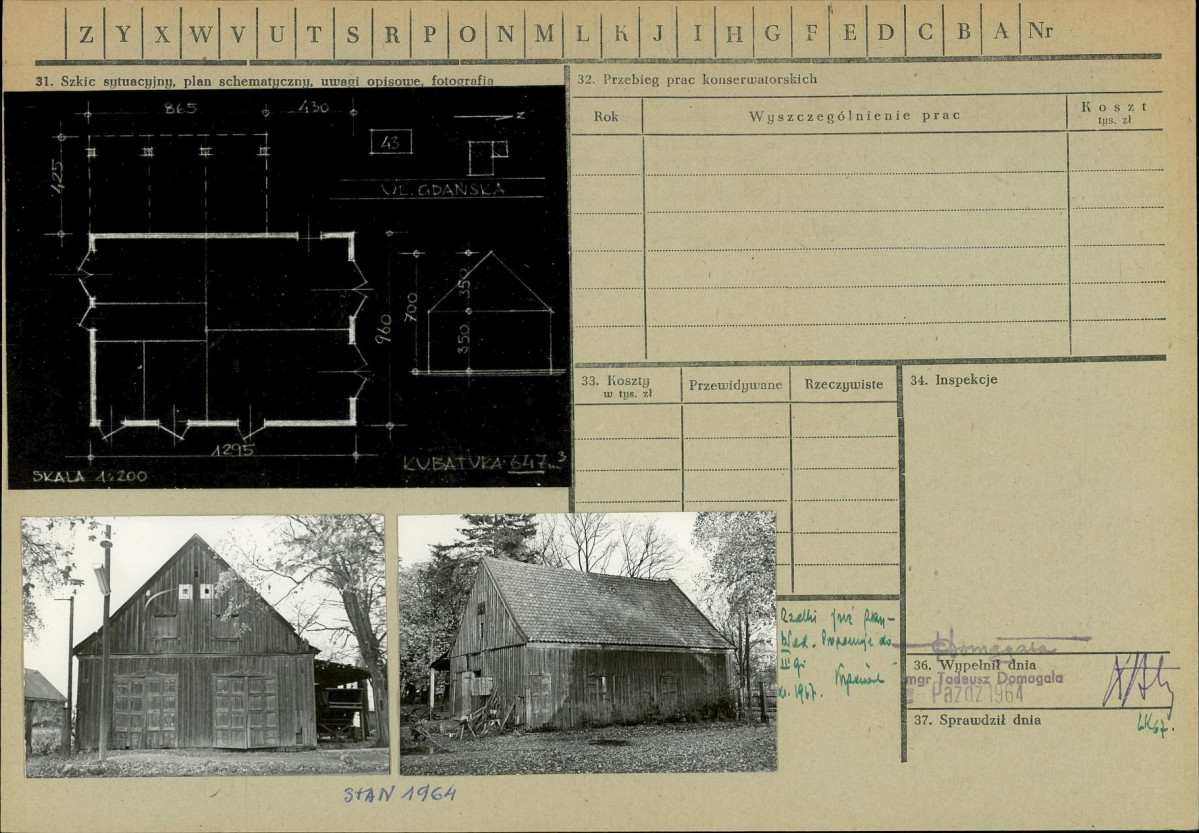 Z Y X W V U T S R P O N M L K J I H G F E D C B A Nr
31. Szkic sytuacyjny, plan schematyczny, uwagi opisowe, fotografia
865
430
425
43
N
UL. GDAŃSKA
960
700
350
350
1295
SKALA 1:200
KUBATURA 647 m³
STAN 1964
32. Przebieg prac konserwatorskich
Rok
Wyszczególnienie prac
Koszt
tys. zł
33. Koszty
w tys. zł
Przewidywane
Rzeczywiste
Rzadki już przy-
do
1967.
34. Inspekcje
Domagała
36. Wypełnił dnia
mgr Tadeusz Domogala
Paźdz 1964
37. Sprawdził dnia